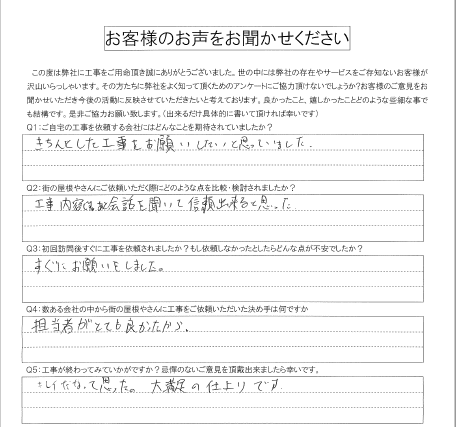 お客様のお声をお聞かせください
この度は弊社に工事をご用命頂き誠にありがとうございました。世の中には弊社の存在やサービスをご存知ないお客様が
沢山いらっしゃいます。その方たちに弊社をよく知って頂くためのアンケートにご協力頂けないでしょうか?お客様のご意見をお
聞かせいただき今後の活動に反映させていただきたいと考えております。良かったこと、嬉しかったことどのような些細な事で
も結構です。是非ご協力お願い致します。(出来るだけ具体的に書いて頂ければ幸いです)
Q1:ご自宅の工事を依頼する会社にはどんなことを期待されていましたか?
きちんとした工事をお願いしたいと思っていました.
Q2:街の屋根やさんにご依頼いただく際にどのような点を比較・検討されましたか?
工事内容 会話を聞いて信頼出来ると思った
Q3:初回訪問後すぐに工事を依頼されましたか?もし依頼しなかったとしたらどんな点が不安でしたか?
すぐにお願いをしました。
Q4:数ある会社の中から街の屋根やさんに工事をご依頼いただいた決め手は何ですか
担当者がとても良かたから、
Q5:工事が終わってみていかがですか?忌憚のないご意見を頂戴出来ましたら幸いです。
て思った。 大満足の仕上りです